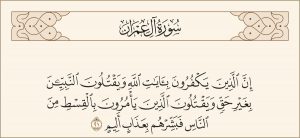 سُورَةُ آلِ عِمۡرَانَ
إِنَّ ٱلَّذِينَ يَكۡفُرُونَ بِـَٔايَٰتِ ٱللَّهِ وَيَقۡتُلُونَ ٱلنَّبِيِّـۧنَ
بِغَيۡرِ حَقّٖ وَيَقۡتُلُونَ ٱلَّذِينَ يَأۡمُرُونَ بِٱلۡقِسۡطِ مِنَ
ٱلنَّاسِ فَبَشِّرۡهُم بِعَذَابٍ أَلِيمٍ ٢١